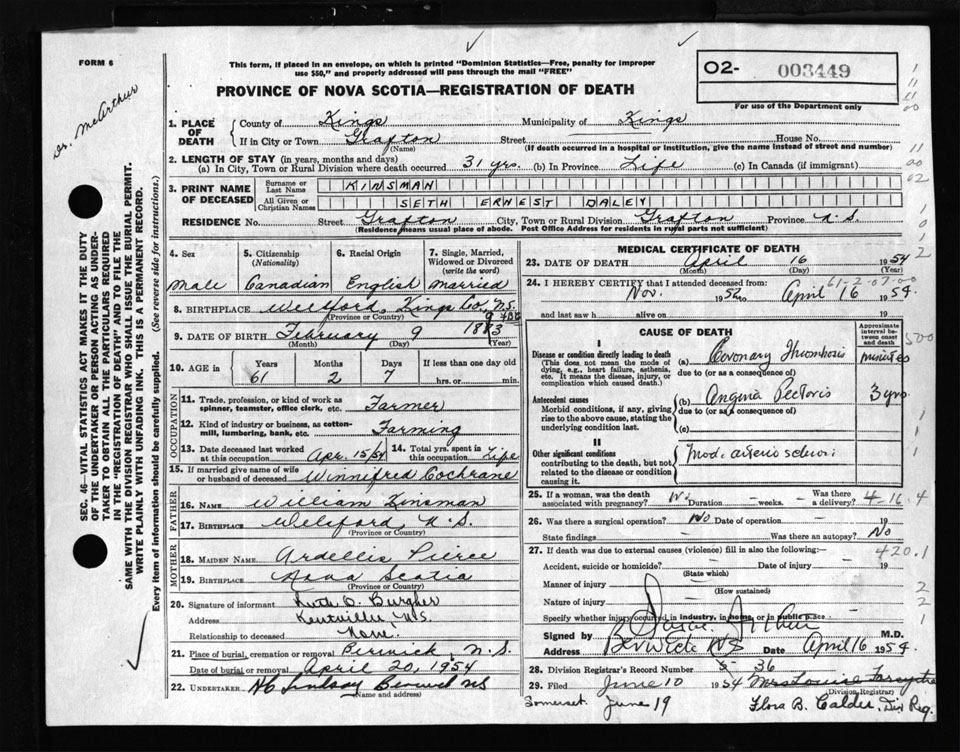 FORM 6
This form, if placed in an envelope, on which is printed "Dominion Statistics—Free, penalty for improper
use $50," and properly addressed will pass through the mail "FREE"
O2- 003449
For use of the Department only
PROVINCE OF NOVA SCOTIA—REGISTRATION OF DEATH
Dr. McArthur
SEC. 46—VITAL STATISTICS ACT MAKES IT THE DUTY
OF THE UNDERTAKER OR PERSON ACTING AS UNDER-
TAKER TO OBTAIN ALL THE PARTICULARS REQUIRED
IN THE "REGISTRATION OF DEATH" AND TO FILE THE
SAME WITH THE DIVISION REGISTRAR WHO SHALL ISSUE THE BURIAL PERMIT.
WRITE PLAINLY WITH UNFADING INK. THIS IS A PERMANENT RECORD.
Every item of information should be carefully supplied. (See reverse side for instructions.)
1. PLACE OF DEATH County of Kings Municipality of Kings
If in City or Town Grafton Street House No.
(Name) (If death occurred in a hospital or institution, give the name instead of street and number)
2. LENGTH OF STAY (in years, months and days)
(a) In City, Town or Rural Division where death occurred 31 yrs. (b) In Province Life (c) In Canada (if immigrant)
3. PRINT NAME OF DECEASED Surname or Last Name KINSMAN
All Given or Christian Names SETH ERNEST DALEY
RESIDENCE No. Street Grafton City, Town or Rural Division Grafton Province N.S.
(Residence means usual place of abode. Post Office Address for residents in rural parts not sufficient)
4. Sex 5. Citizenship (Nationality) 6. Racial Origin 7. Single, Married, Widowed or Divorced (write the word)
Male Canadian English married
8. BIRTHPLACE Welsford, Kings Co., N.S.
(Province or Country)
9. DATE OF BIRTH February 9 1893
(Month) (Day) (Year)
10. AGE in Years Months Days If less than one day old
61 2 7 hrs. or min.
OCCUPATION
11. Trade, profession, or kind of work as spinner, teamster, office clerk, etc. Farmer
12. Kind of industry or business, as cotton-mill, lumbering, bank, etc. Farming
13. Date deceased last worked at this occupation Apr. 15/54 14. Total yrs. spent in this occupation Life
15. If married give name of wife or husband of deceased Winnifred Cochrane
FATHER
16. NAME William Kinsman
17. BIRTHPLACE Welsford, N.S.
MOTHER
18. MAIDEN NAME Ardellis Pierce
19. BIRTHPLACE Nova Scotia
(Province or Country)
20. Signature of informant Ruth O. Burgher
Address Kentville, N.S.
Relationship to deceased None.
21. Place of burial, cremation or removal Berwick, N.S.
Date of burial or removal April 20, 1954
22. UNDERTAKER Lindsay Berwick NS
(Name and address)
MEDICAL CERTIFICATE OF DEATH
23. DATE OF DEATH April 16 1954
(Month) (Day) (Year)
24. I HEREBY CERTIFY that I attended deceased from:
Nov. 1952 to April 16 1954
and last saw h alive on 19
CAUSE OF DEATH
Approximate interval between onset and death
I
Disease or condition directly leading to death
(This does not mean the mode of dying, e.g., heart failure, asthenia, etc. It means the disease, injury, or complication which caused death.)
(a) Coronary Thrombosis minutes
due to (or as a consequence of)
Antecedent causes
Morbid conditions, if any, giving rise to the above cause, stating the underlying condition last.
(b) Angina Pectoris 3 yrs.
due to (or as a consequence of)
(c)
II
Other significant conditions
contributing to the death, but not related to the disease or condition causing it.
25. If a woman, was the death associated with pregnancy? No Duration - weeks. - Was there a delivery? 4-16.4
26. Was there a surgical operation? No Date of operation — 19
State findings — Was there an autopsy? No
27. If death was due to external causes (violence) fill in also the following:— 420.1
Accident, suicide or homicide? — Date of injury — 19
(State which)
Manner of injury —
(How sustained)
Nature of injury —
Specify whether injury occurred in industry, in home, or in public place. —
Signed by M.D.
Address Berwick NS Date April 16 1954
28. Division Registrar's Record Number 36
29. Filed June 10 1954 Mrs Louise Forsythe
(Division Registrar)
Somerset. June 19 Flora B. Calder. Div Reg.